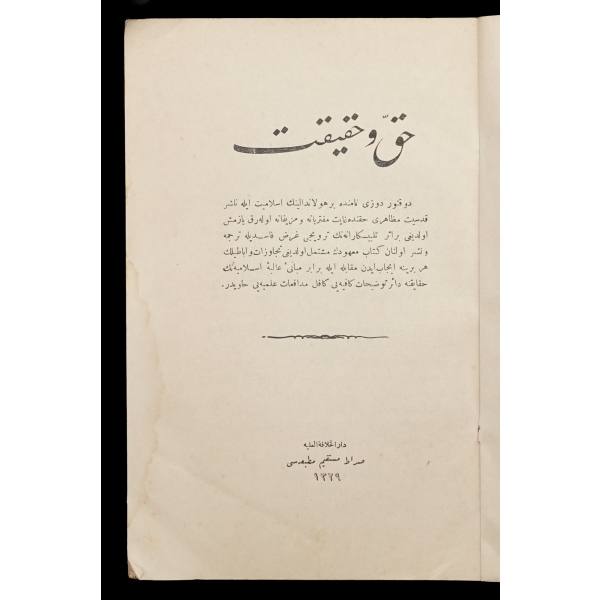 حقّ و حقیقت
دوقتور دوزی نامنده بر هولاندالینك اسلامیت ایله ناشر
قدسیت مظاهری حقنده نایت مفتریانه و مزیفانه اوله‌رق یازمش
اولدیغی بر اثر تلبیسکارانه‌نك ترویجی غرض فاسدیله ترجمه
و نشر اولنان کتاب معهودك مشتمل اولدیغی تجاوزات و اباطیلك
هر برینه ایجاب ایدن مقابله ایله برابر مبانئ عالیهٔ اسلامیه‌نك
حقایقنه دائر توضیحات کافیه‌یی کافل مدافعات علمیه‌یی حاویدر.
دار الخلافة العلیه
صراط مستقیم مطبعه‌سی
١٣٢٩